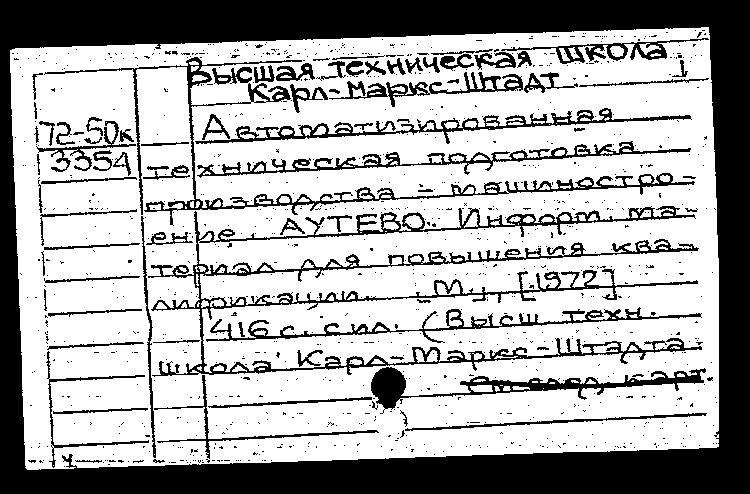 Высшая техническая школа
Карл-Маркс-Штадт.
72-50к
3354
Автоматизированная
техническая подготовка
производства - машиностро-
ение. АУТЕВО. Информ. ма-
териал для повышения ква-
лификации. [М.], [1972]
416 с. с ил. (Высш техн.
школа Карл-Маркс-Штадта.
См. след. карт.